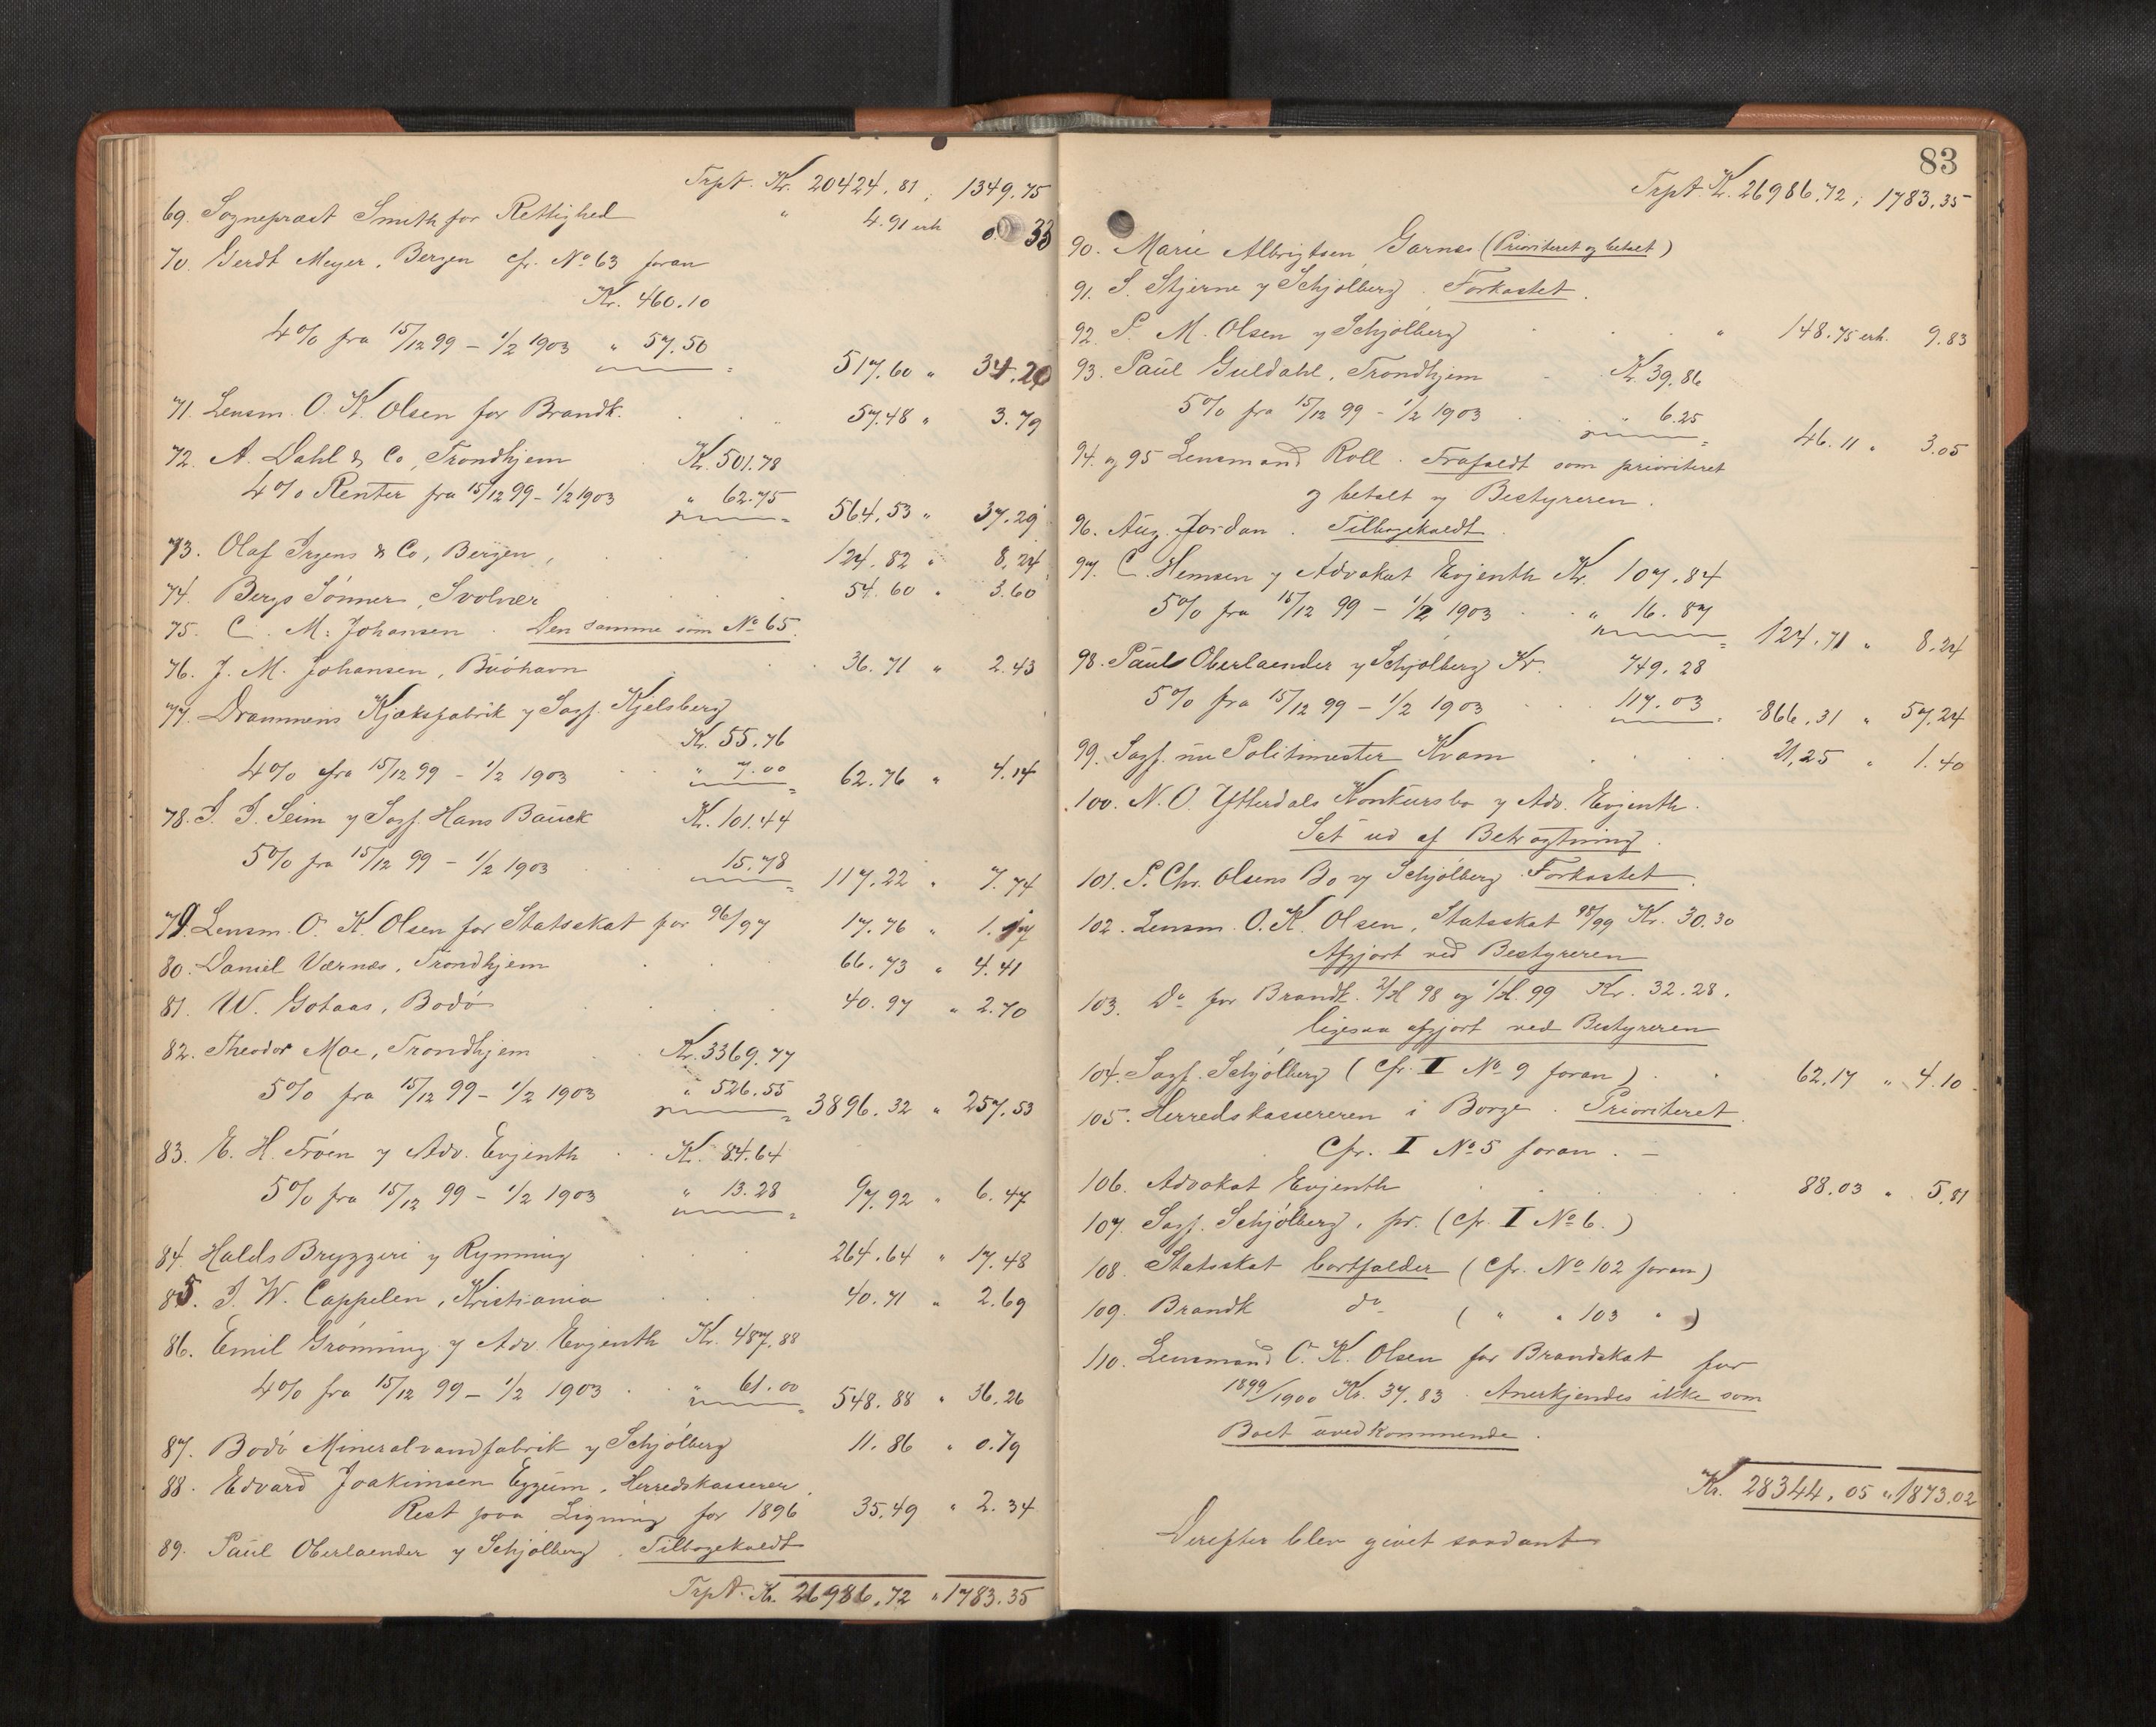 Trpt. Kr. 20424.81 ; 1349.75
69. Sognepræst Smith for Rettighed " 4.91 erh 0.33
70. Gerdt Meyer, Bergen cfr. No 63 foran
Kr. 460.10
4% fra 15/12 99 - 1/2 1903 " 57.50 517.60 " 34.20
71. Lensm. O. K. Olsen for Brandk. 57.48 " 3.79
72. A. Dahl & Co, Trondhjem Kr. 501.78
4% Renter fra 15/12 99 - 1/2 1903 " 62.75 564.53 " 37.29
73. Olaf Irgens & Co, Bergen, 124.82 " 8.24
74. Bergs Sønner, Svolvær 54.60 " 3.60
75. C. M. Johansen. Den samme som No 65.
76. J. M. Johansen, Buøhavn 36.71 " 2.43
77. Drammens Kjæksfabrik v Sagf. Kjelsberg
Kr. 55.76
4% fra 15/12 99 - 1/2 1903 " 7.00 62.76 " 4.14
78. I. I. Seim v Sagf. Hans Bauck Kr. 101.44
5% fra 15/12 99 - 1/2 1903 15.78 117.22 " 7.74
79. Lensm. O. K. Olsen for Statsskat for 96/97 17.76 " 1.17
80. Daniel Værnes, Trondhjem 66.73 " 4.41
81. W. Gotaas, Bodø 40.97 " 2.70
82. Theodor Moe, Trondhjem Kr. 3369.77
5% fra 15/12 99 - 1/2 1903 " 526.55 3896.32 " 257.53
83. E. H. Frøen v Adv. Evjenth Kr. 84.64
5% fra 15/12 99 - 1/2 1903 " 13.28 97.92 " 6.47
84. Halds Bryggeri v Rynning 264.64 " 17.48
85. J. W. Cappelen, Kristiania 40.71 " 2.69
86. Emil Grønning v Adv. Evjenth Kr. 487.88
4% fra 15/12 99 - 1/2 1903 " 61.00 548.88 " 36.26
87. Bodø Mineralvandfabrik v Schjølberg 11.86 " 0.79
88. Edvard Joakimsen Eggum, Herredskasserer,
Rest paa Ligning for 1896 35.49 " 2.34
89. Paul Oberlaender v Schjølberg. Tilbagekaldt
Trpt. Kr. 26986.72 " 1783.35
83
Trpt. Kr. 26986.72 ; 1783.35
90. Marie Albrigtsen Garnes (Prioriteret og betalt)
91. S. Stjerne v Schjølberg. Forkastet.
92. P. M. Olsen v Schjølberg " 148.75 erh. 9.83
93. Paul Guldahl, Trondhjem - Kr. 39.86
5% fra 15/12 99 - 1/2 1903 " 6.25 46.11 " 3.05
94. og 95 Lensmand Roll. Frafaldt som prioriteret
og betalt af Bestyreren.
96. Aug. Jordan. Tilbagekaldt.
97. C. Hemsen v Advokat Evjenth Kr. 107.84
5% fra 15/12 99 - 1/2 1903 " 16.87 124.71 " 8.24
98. Paul Oberlaender v Schjølberg Kr. 749.28
5% fra 15/12 99 - 1/2 1903 117.03 866.31 " 57.24
99. Sagf. nu Politimester Kvam 21.25 " 1.40
100. N. O. Ytterdals Konkursbo v Adv. Evjenth.
Sat ud af Betragtning.
101. P. Chr. Olsens Bo v Schjølberg. Forkastet.
102. Lensm. O. K. Olsen, Statsskat 98/99 Kr. 30.30
Afgjort ved Bestyreren
103. Do for Brandk. 2/H 98 og 1/H. 99 Kr. 32.28.
ligesaa afgjort ved Bestyreren
104. Sagf. Schjølberg (Cfr. I No 9 foran) 62.17 " 4.10
105. Herredskassereren i Borge. Prioriteret.
Cfr. I No 5 foran. -
106. Advokat Evjenth 88.03 " 5.81
107. Sagf. Schjølberg, pr. (cfr. I No 6.)
108. Statsskat bortfalder (Cfr. No 102 foran)
109. Brandk do ( " " 103 " )
110. Lensmand O. K. Olsen for Brandskat for
1899/1900 Kr. 37.83. Anerkjendes ikke som
Boet uvedkommende.
Kr. 28344.05 " 1873.02
Derefter blev givet saadant